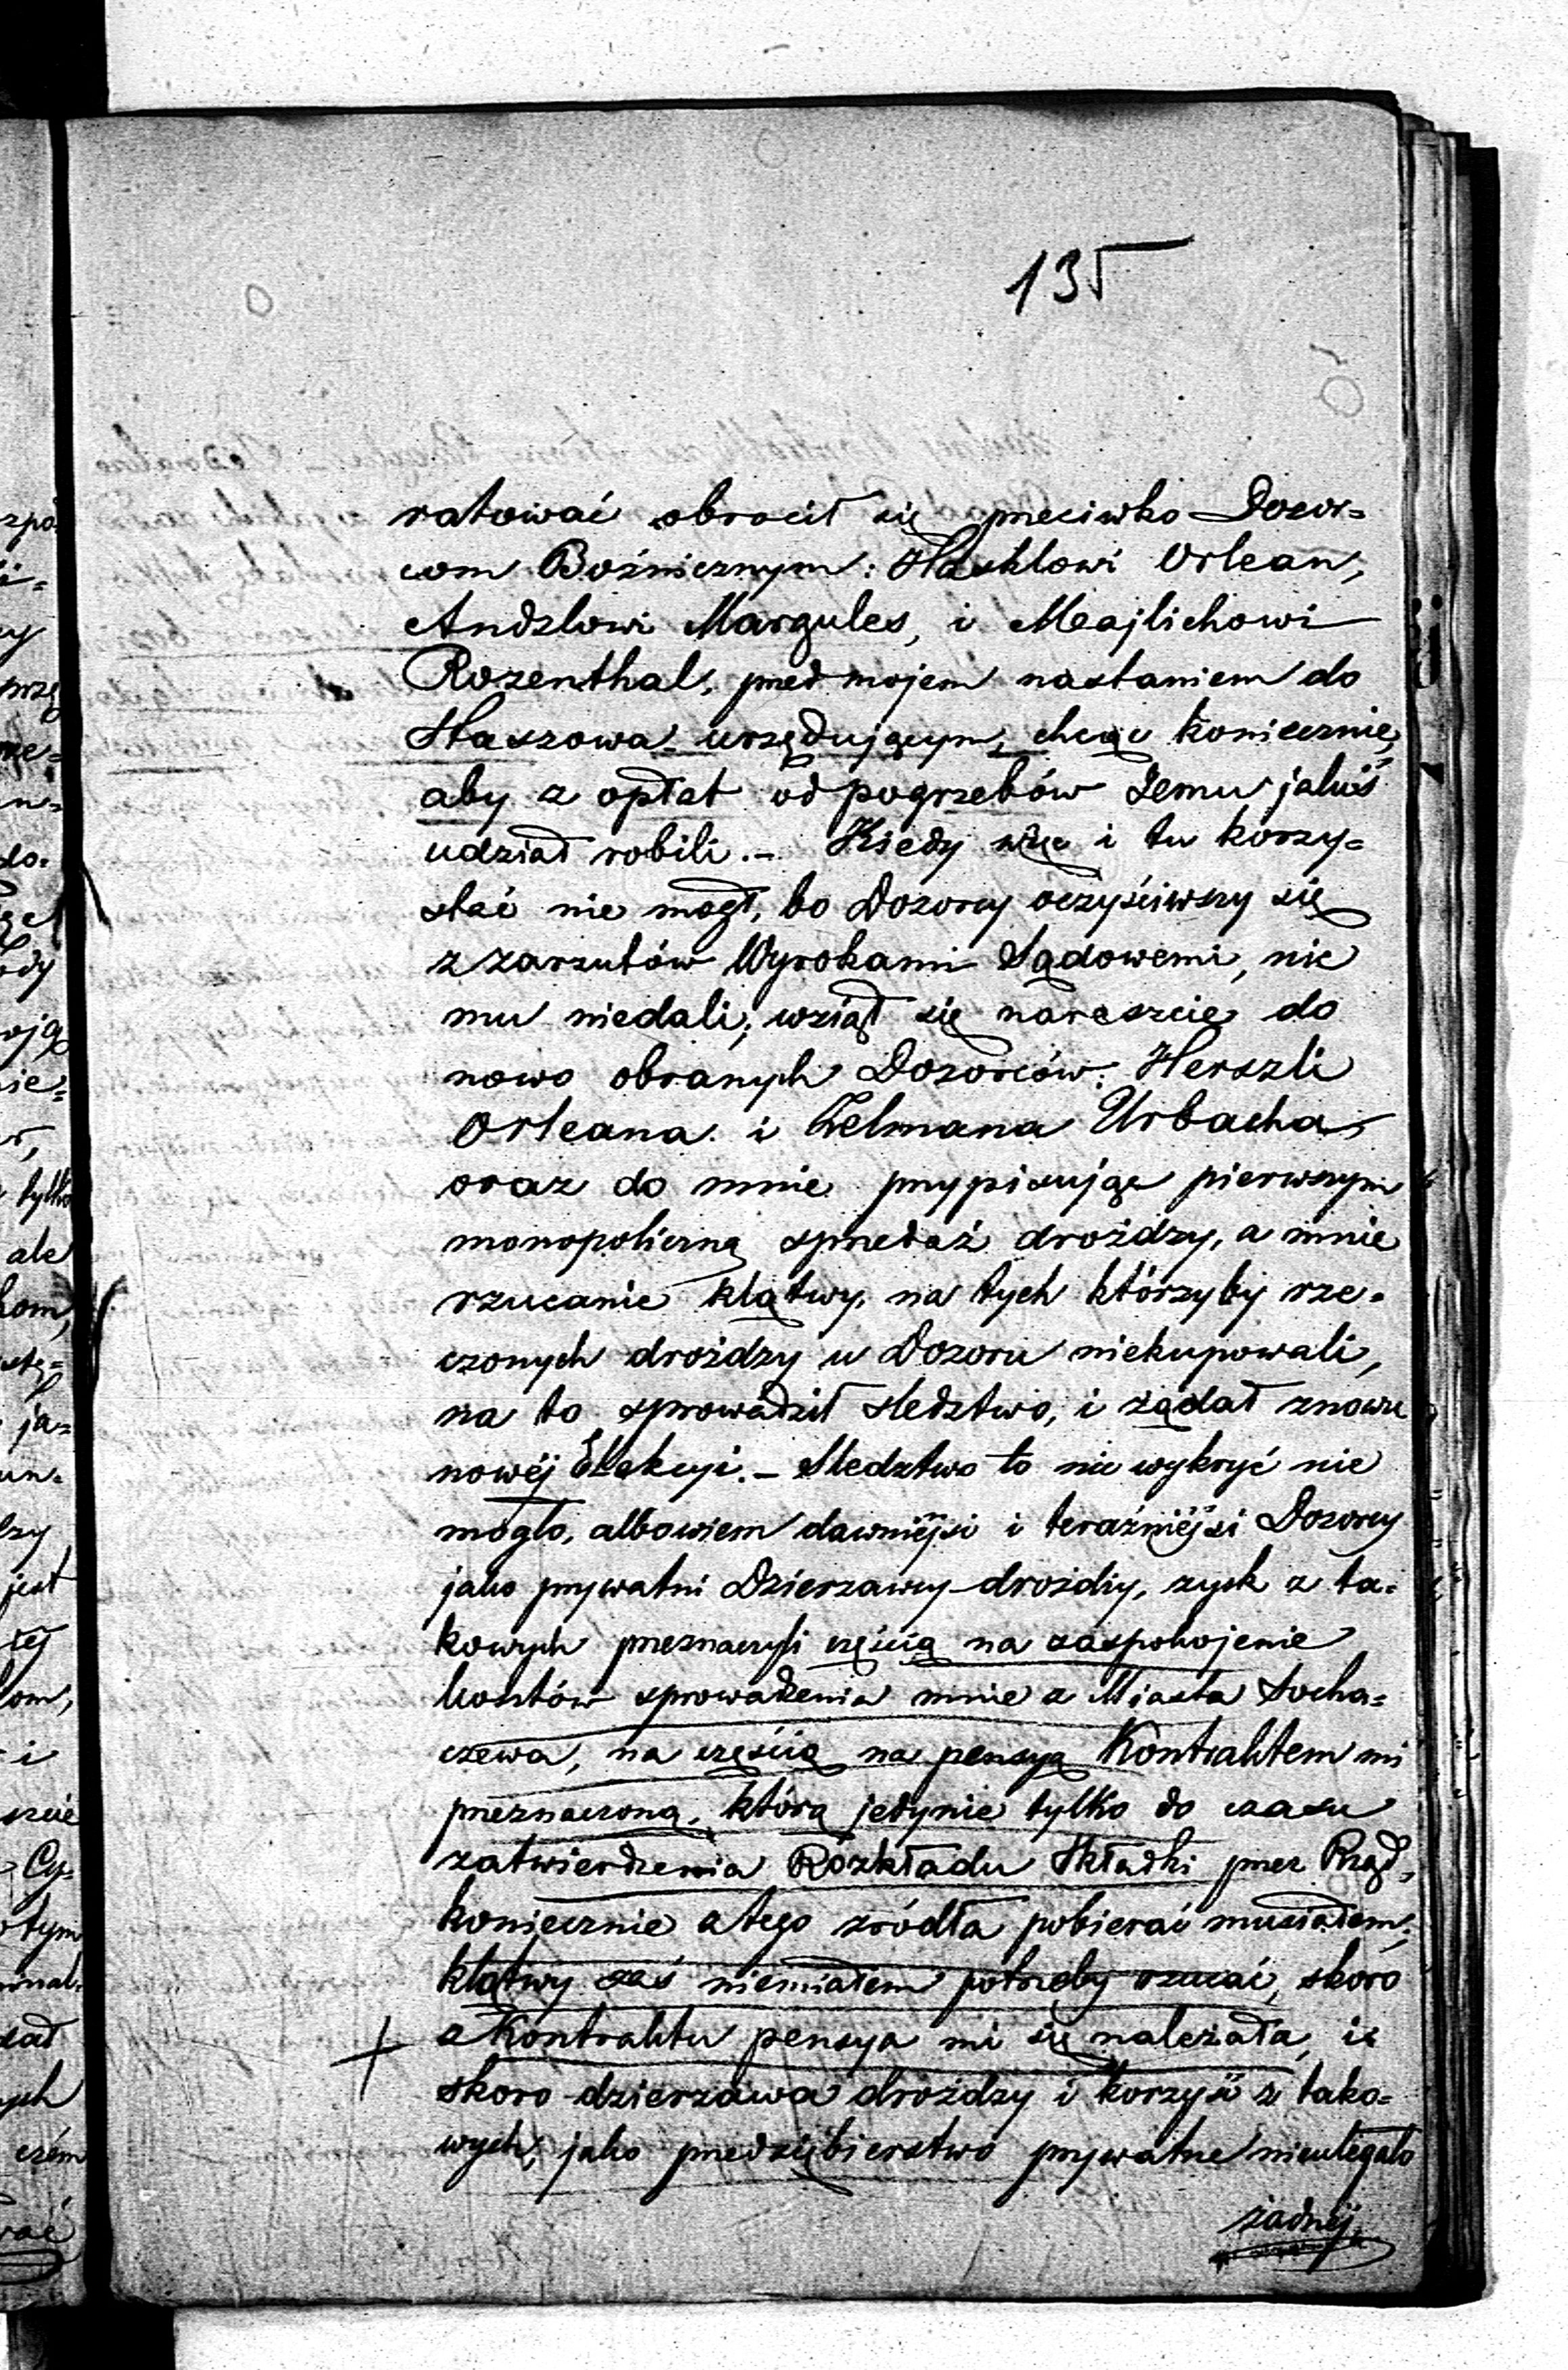 135
ratować obrócił się przeciwko Dozor=
com Bożnicznym: Hasklowi Orlean,
Andzlowi Margules, i Meajlichowi
Rozenthal, przed mojem nastaniem do
Staszowa urzędującym, chcąc koniecznie,
aby z opłat od pogrzebów Jemu jakiś
udział robili. – Kiedy więc i tu korzy=
stać nie mógł, bo Dozorcy oczyściwszy się
z zarzutów Wyrokami Sądowemi, nic
mu niedali; wziął się nareszcie do
nowo obranych Dozorców: Herszli
Orleana i Zelmana Urbacha,
oraz do mnie przypisując pierwszym
monopoliczną sprzedaż drożdży, a mnie
rzucanie klątwy, na tych którzyby rze=
czonych drożdży u Dozoru niekupowali,
na to sprowadził sledztwo, i żądał znowu
nowéj Elekcyi. – Sledztwo to nic wykryć nie
mogło, albowiem dawniejsi i teraźniejsi Dozorcy
jako prywatni Dzierzawcy drożdży, zysk z ta=
kowych przeznaczyli częścią na zaspokojenie
kosztów sprowadzenia mnie z Miasta Socha=
czewa, na częścią na pensyą Kontraktem mi
przeznaczoną, którą jedynie tylko do czasu
zatwierdzenia Rozkładu Składki przez Rząd,
koniecznie z tego zródła pobierać musiałem;
klątwy zaś niemiałem potrzeby rzucać, skoro
z Kontraktu pensya mi się należała, i
skoro dzierzawa drożdży i korzyść z tako=
wych, jako przedsiębierstwo prywatne nieulegało
żadnéj